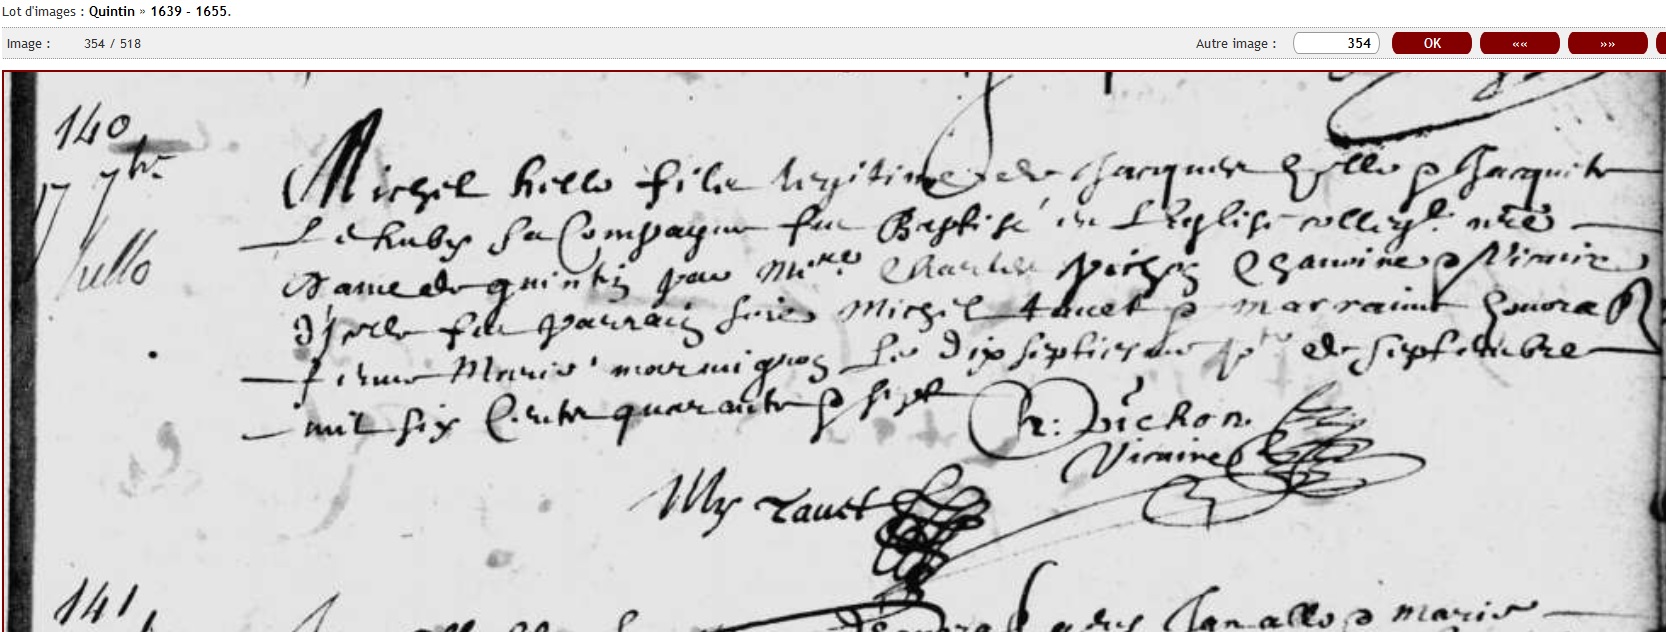 Lot d'images : Quintin » 1639 - 1655.
Image : 354 / 518 Autre image : 354 OK «« »»
140
17 7bre
hello
Michel hello fils legitime de Jacques hello & Jacquite
Lehuby sa Compagne fut Baptisé en L'eglise collegl. nre
dame de quintin par Mire Charles pichon Chanoine & Vicaire
d'icelle fut parrain Michel tauet & marraine honora
femme Marie marmignon Le dix septiesme jr de septembre
mil six Cents quarante & sept
Ch: Pichon
Vicaire
Mi Tauet
141
& marie